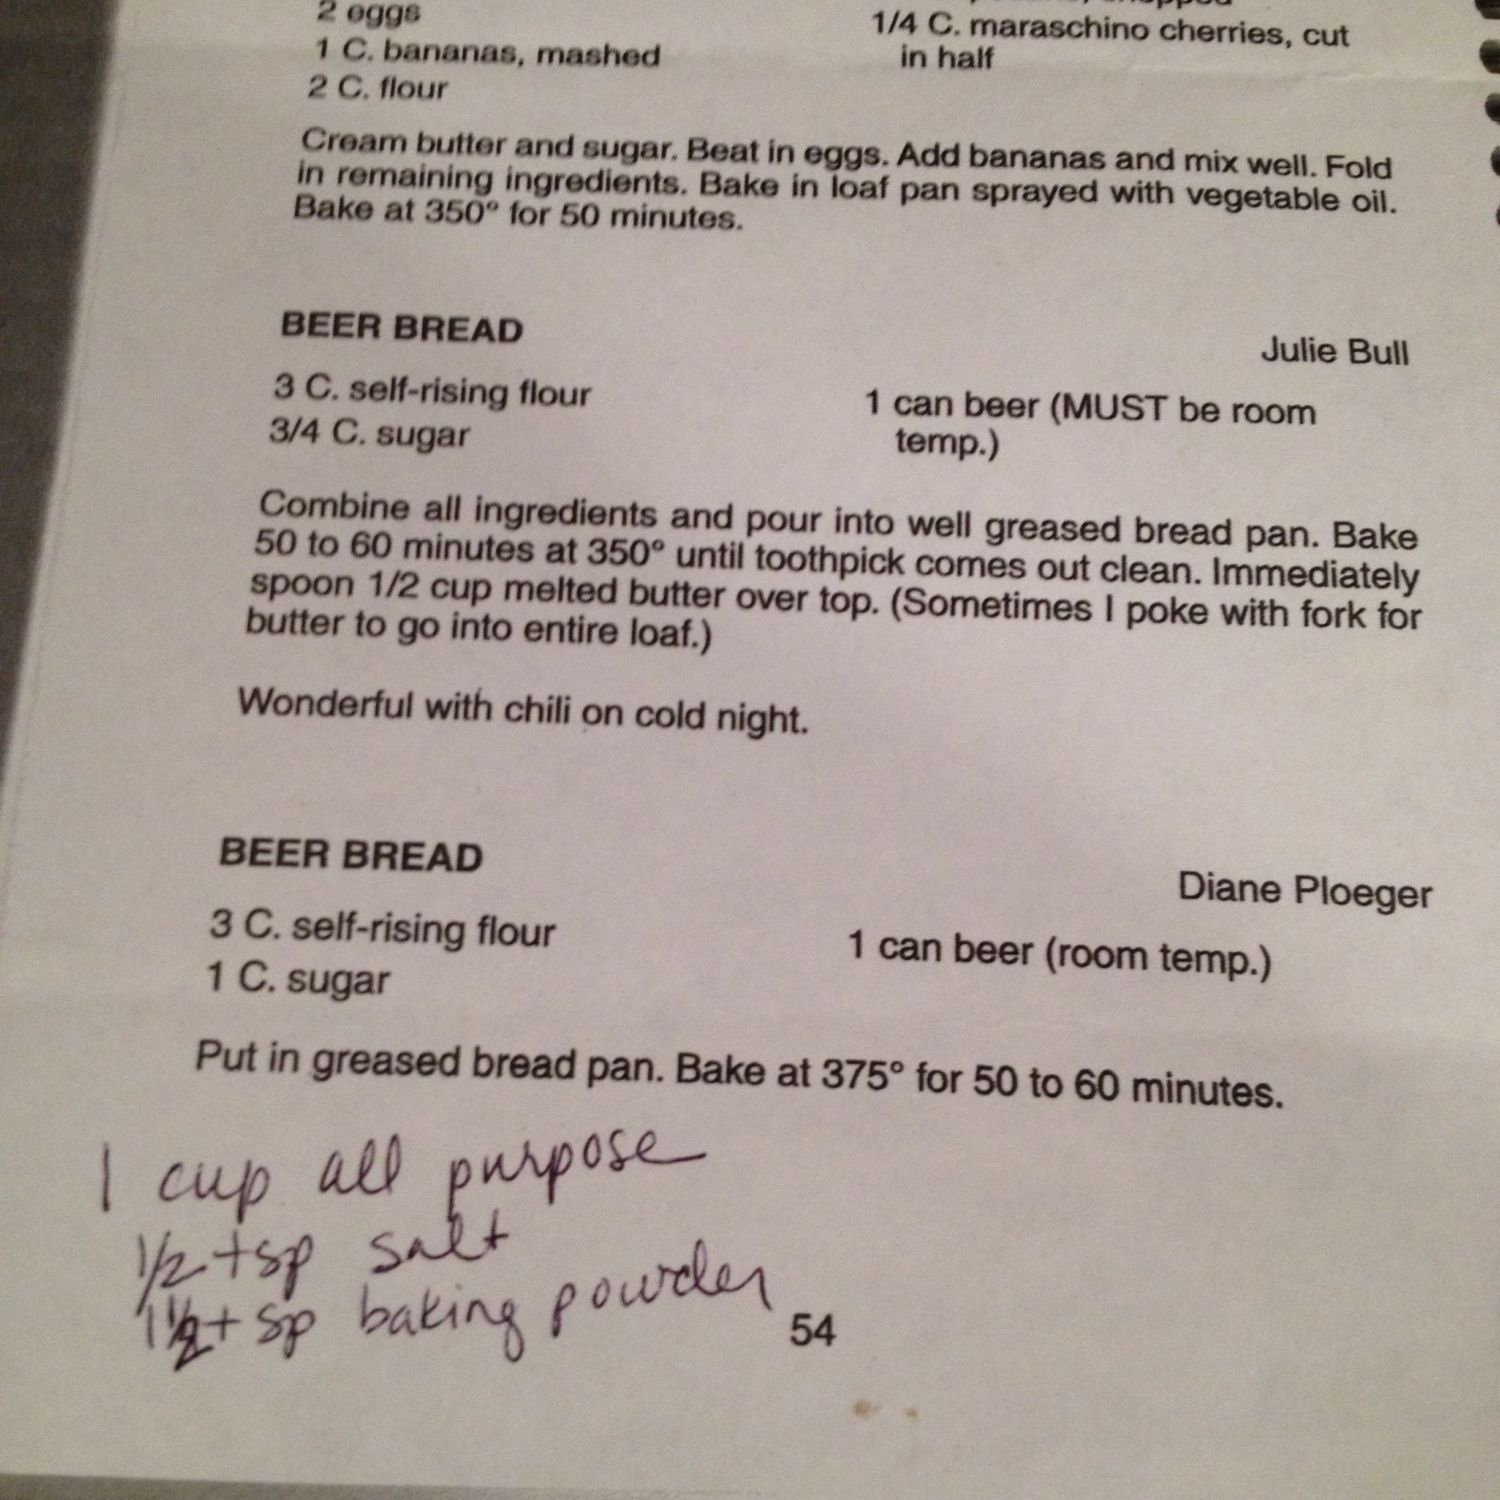 2 eggs
1 C. bananas, mashed
2 C. flour
chopped
1/4 C. maraschino cherries, cut
in half
Cream butter and sugar. Beat in eggs. Add bananas and mix well. Fold
in remaining ingredients. Bake in loaf pan sprayed with vegetable oil.
Bake at 350° for 50 minutes.
BEER BREAD
Julie Bull
3 C. self-rising flour
3/4 C. sugar
1 can beer (MUST be room
temp.)
Combine all ingredients and pour into well greased bread pan. Bake
50 to 60 minutes at 350° until toothpick comes out clean. Immediately
spoon 1/2 cup melted butter over top. (Sometimes I poke with fork for
butter to go into entire loaf.)
Wonderful with chili on cold night.
BEER BREAD
Diane Ploeger
3 C. self-rising flour
1 C. sugar
1 can beer (room temp.)
Put in greased bread pan. Bake at 375° for 50 to 60 minutes.
1 cup all purpose
1/2 tsp salt
1 1/2 tsp baking powder
54